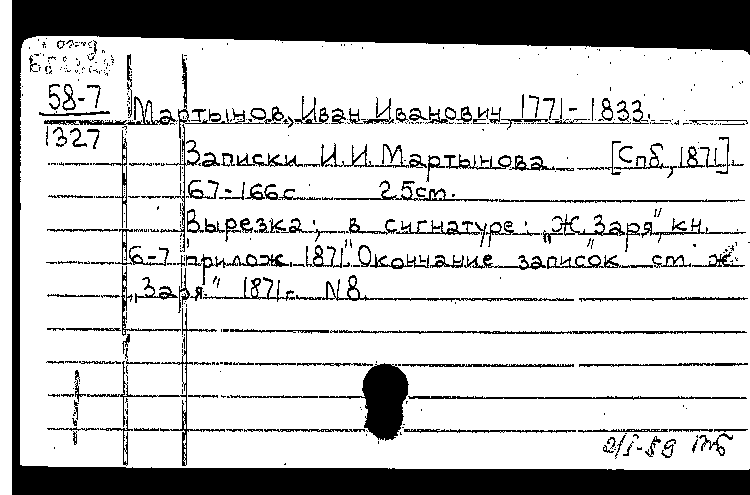 отд.
58-7
1327
Мартынов, Иван Иванович, 1771-1833.
Записки И.И. Мартынова [Спб, 1871]
67-166с 25см.
Вырезка; в сигнатуре: "Ж. Заря", кн.
6-7 прилож. 1871". Окончание записок" см. ж.
"Заря" 1871г. N 8.